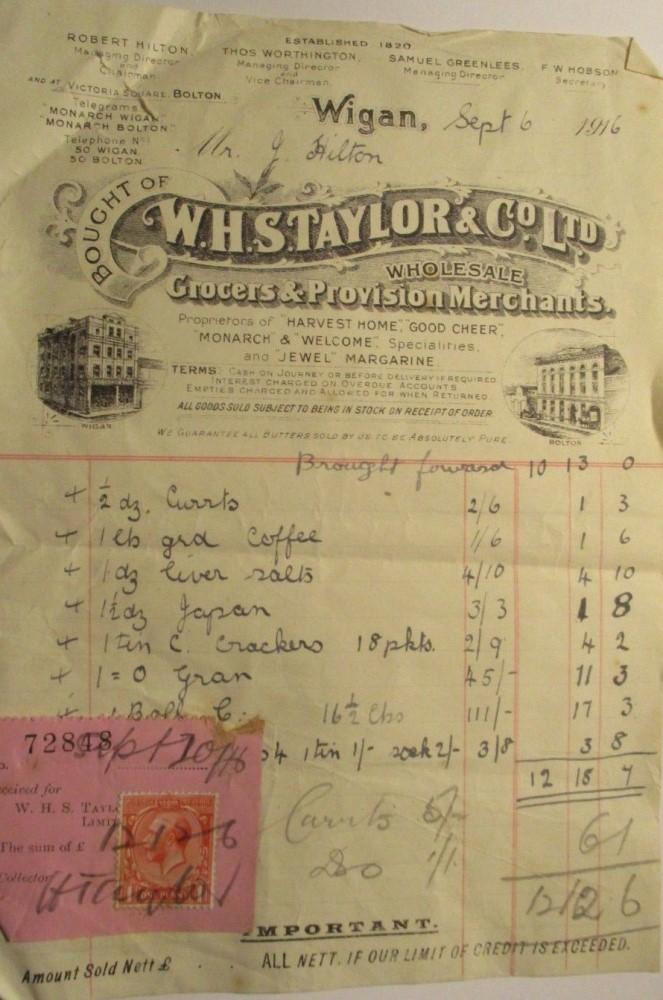 ROBERT HILTON,
Managing Director
and
Chairman
ESTABLISHED 1820
THOS WORTHINGTON,
Managing Director
and
Vice Chairman
SAMUEL GREENLEES,
Managing Director
F W HOBSON
Secretary
AND AT VICTORIA SQUARE, BOLTON.
Telegrams
"MONARCH WIGAN"
"MONARCH BOLTON"
Telephone Nos
50 WIGAN.
50 BOLTON.
Wigan, Sept 6 1916
Mr. J Hilton
BOUGHT OF
W.H.S. TAYLOR & Co. LTD
WHOLESALE
Grocers & Provision Merchants.
Proprietors of "HARVEST HOME", "GOOD CHEER",
"MONARCH" & "WELCOME" Specialities,
and "JEWEL" MARGARINE
TERMS: CASH ON JOURNEY OR BEFORE DELIVERY IF REQUIRED
INTEREST CHARGED ON OVERDUE ACCOUNTS
EMPTIES CHARGED AND ALLOWED FOR WHEN RETURNED
ALL GOODS SOLD SUBJECT TO BEING IN STOCK ON RECEIPT OF ORDER.
WIGAN
BOLTON
WE GUARANTEE ALL BUTTERS SOLD BY US TO BE ABSOLUTELY PURE
Brought forward 10 13 0
+ ½ dz. Currts 2/6 1 3
+ 1 lb grd Coffee 1/6 1 6
+ 1 dz liver salts 4/10 4 10
+ 1½ dz Japan 3/3 1 8
+ 1 tin C. Crackers 18 pkts. 2/9 4 2
+ 1=0 Gran 45/- 11 3
+ C: 16½ lbs 111/- 17 3
1 tin 1/- sock 2/- 3/8 3 8
12 18 7
72848
Sept 20/16
eceived for
W. H. S. TAYL
LIMIT
The sum of £ 12 12 6
Collector
H Taylor
Currts 5/-
Do 1/1
6 1
12 12 6
IMPORTANT.
Amount Sold Nett £ . . ALL NETT. IF OUR LIMIT OF CREDIT IS EXCEEDED.